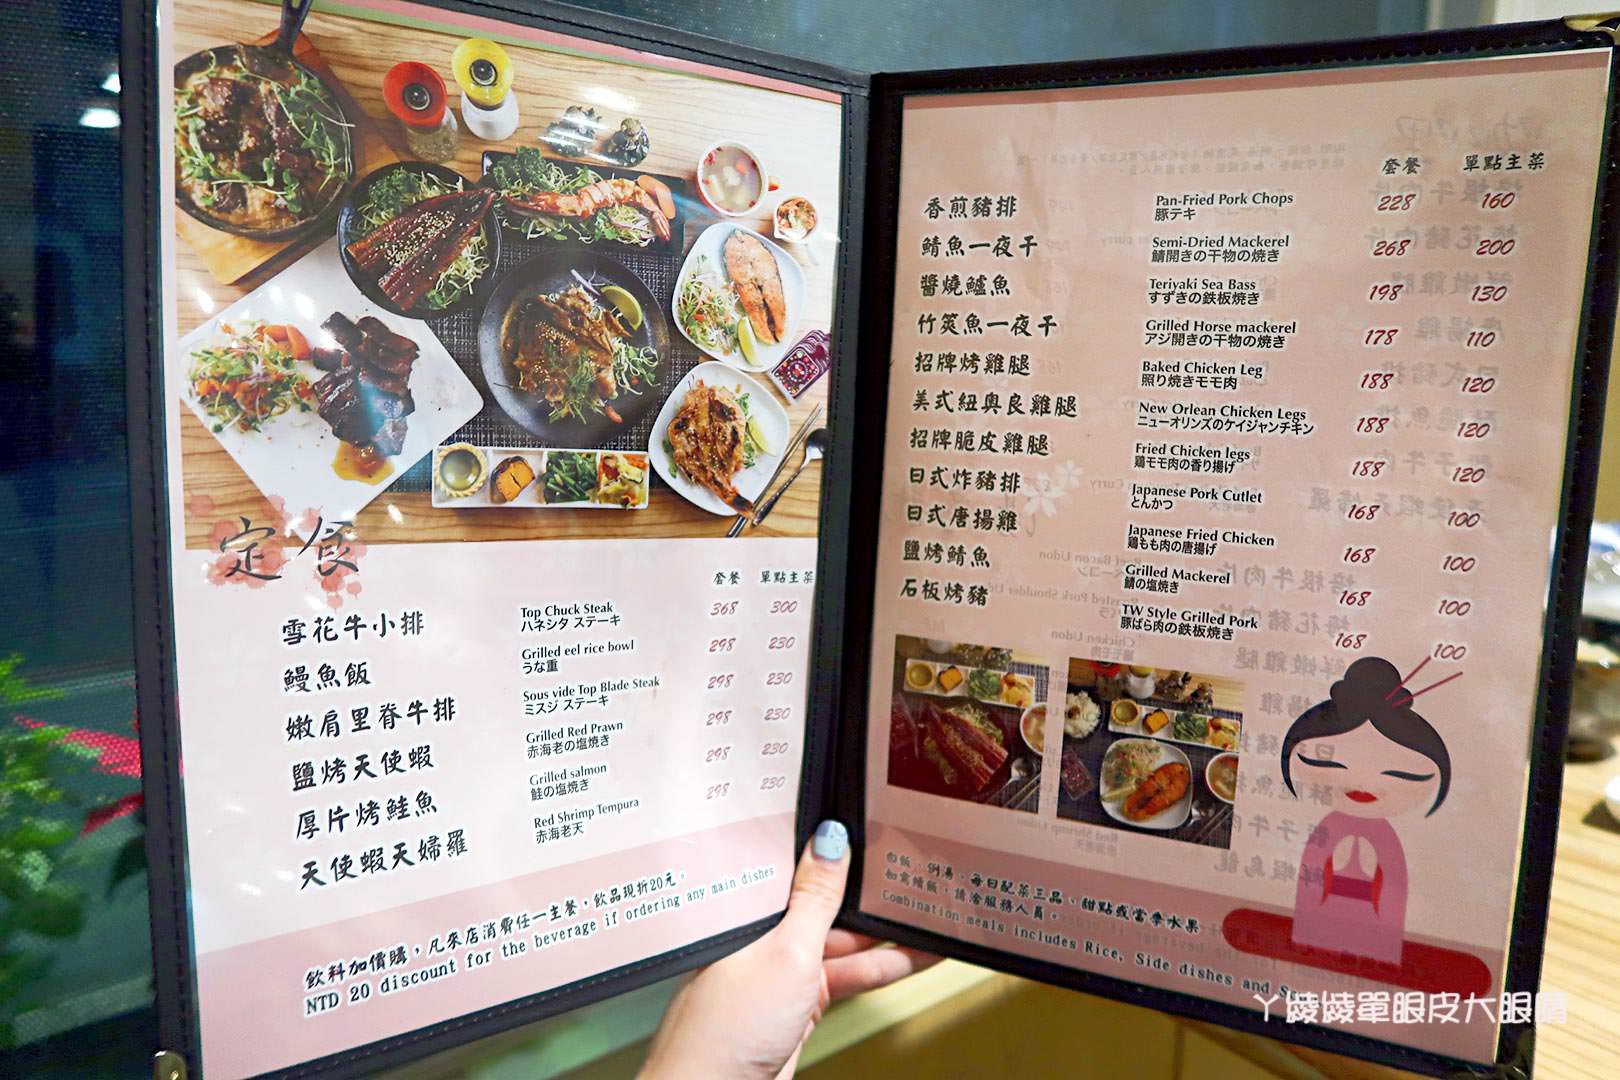 定食
套餐 單點主菜
雪花牛小排 Top Chuck Steak 368 300
ハネシタ ステーキ
鰻魚飯 Grilled eel rice bowl 298 230
うな重
嫩肩里脊牛排 Sous vide Top Blade Steak 298 230
ミスジ ステーキ
鹽烤天使蝦 Grilled Red Prawn 298 230
赤海老の塩焼き
厚片烤鮭魚 Grilled salmon 298 230
鮭の塩焼き
天使蝦天婦羅 Red Shrimp Tempura 298 230
赤海老天
飲料加價購，凡來店消費任一主餐，飲品現折20元。
NTD 20 discount for the beverage if ordering any main dishes
套餐 單點主菜
香煎豬排 Pan-Fried Pork Chops 228 160
豚テキ
鯖魚一夜干 Semi-Dried Mackerel 268 200
鯖開きの干物の焼き
醬燒鱸魚 Teriyaki Sea Bass 198 130
すずきの鉄板焼き
竹筴魚一夜干 Grilled Horse mackerel 178 110
アジ開きの干物の焼き
招牌烤雞腿 Baked Chicken Leg 188 120
照り焼きモモ肉
美式紐奧良雞腿 New Orlean Chicken Legs 188 120
ニューオリンズのケイジャンチキン
招牌脆皮雞腿 Fried Chicken legs 188 120
鶏モモ肉の香り揚げ
日式炸豬排 Japanese Pork Cutlet 168 100
とんかつ
日式唐揚雞 Japanese Fried Chicken 168 100
鶏もも肉の唐揚げ
鹽烤鯖魚 Grilled Mackerel 168 100
鯖の塩焼き
石板烤豬 TW Style Grilled Pork 168 100
豚ばら肉の鉄板焼き
白飯、例湯、每日配菜三品、甜點或當季水果
如需續飯，請洽服務人員。
Combination meals includes Rice, Side dishes and
ㄚ綾綾單眼皮大眼睛